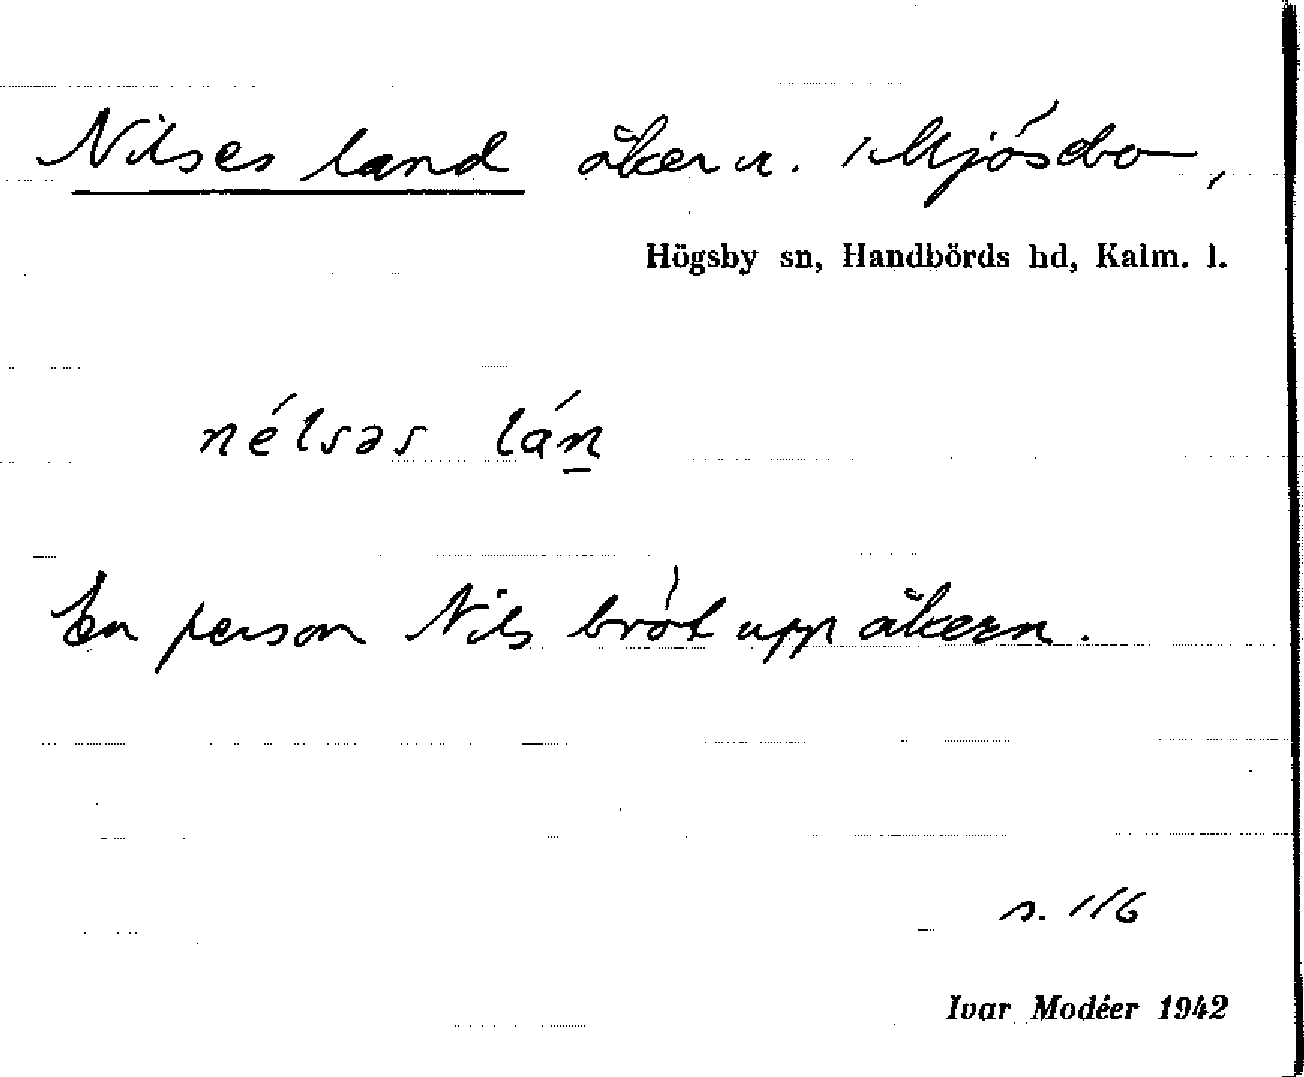 Nilses land åker u. Mjösebo,
Högsby sn, Handbörds hd, Kalm. l.
nélsəs lán̲
En person Nils bröt upp åkern.
s. 116
Ivar Modéer 1942